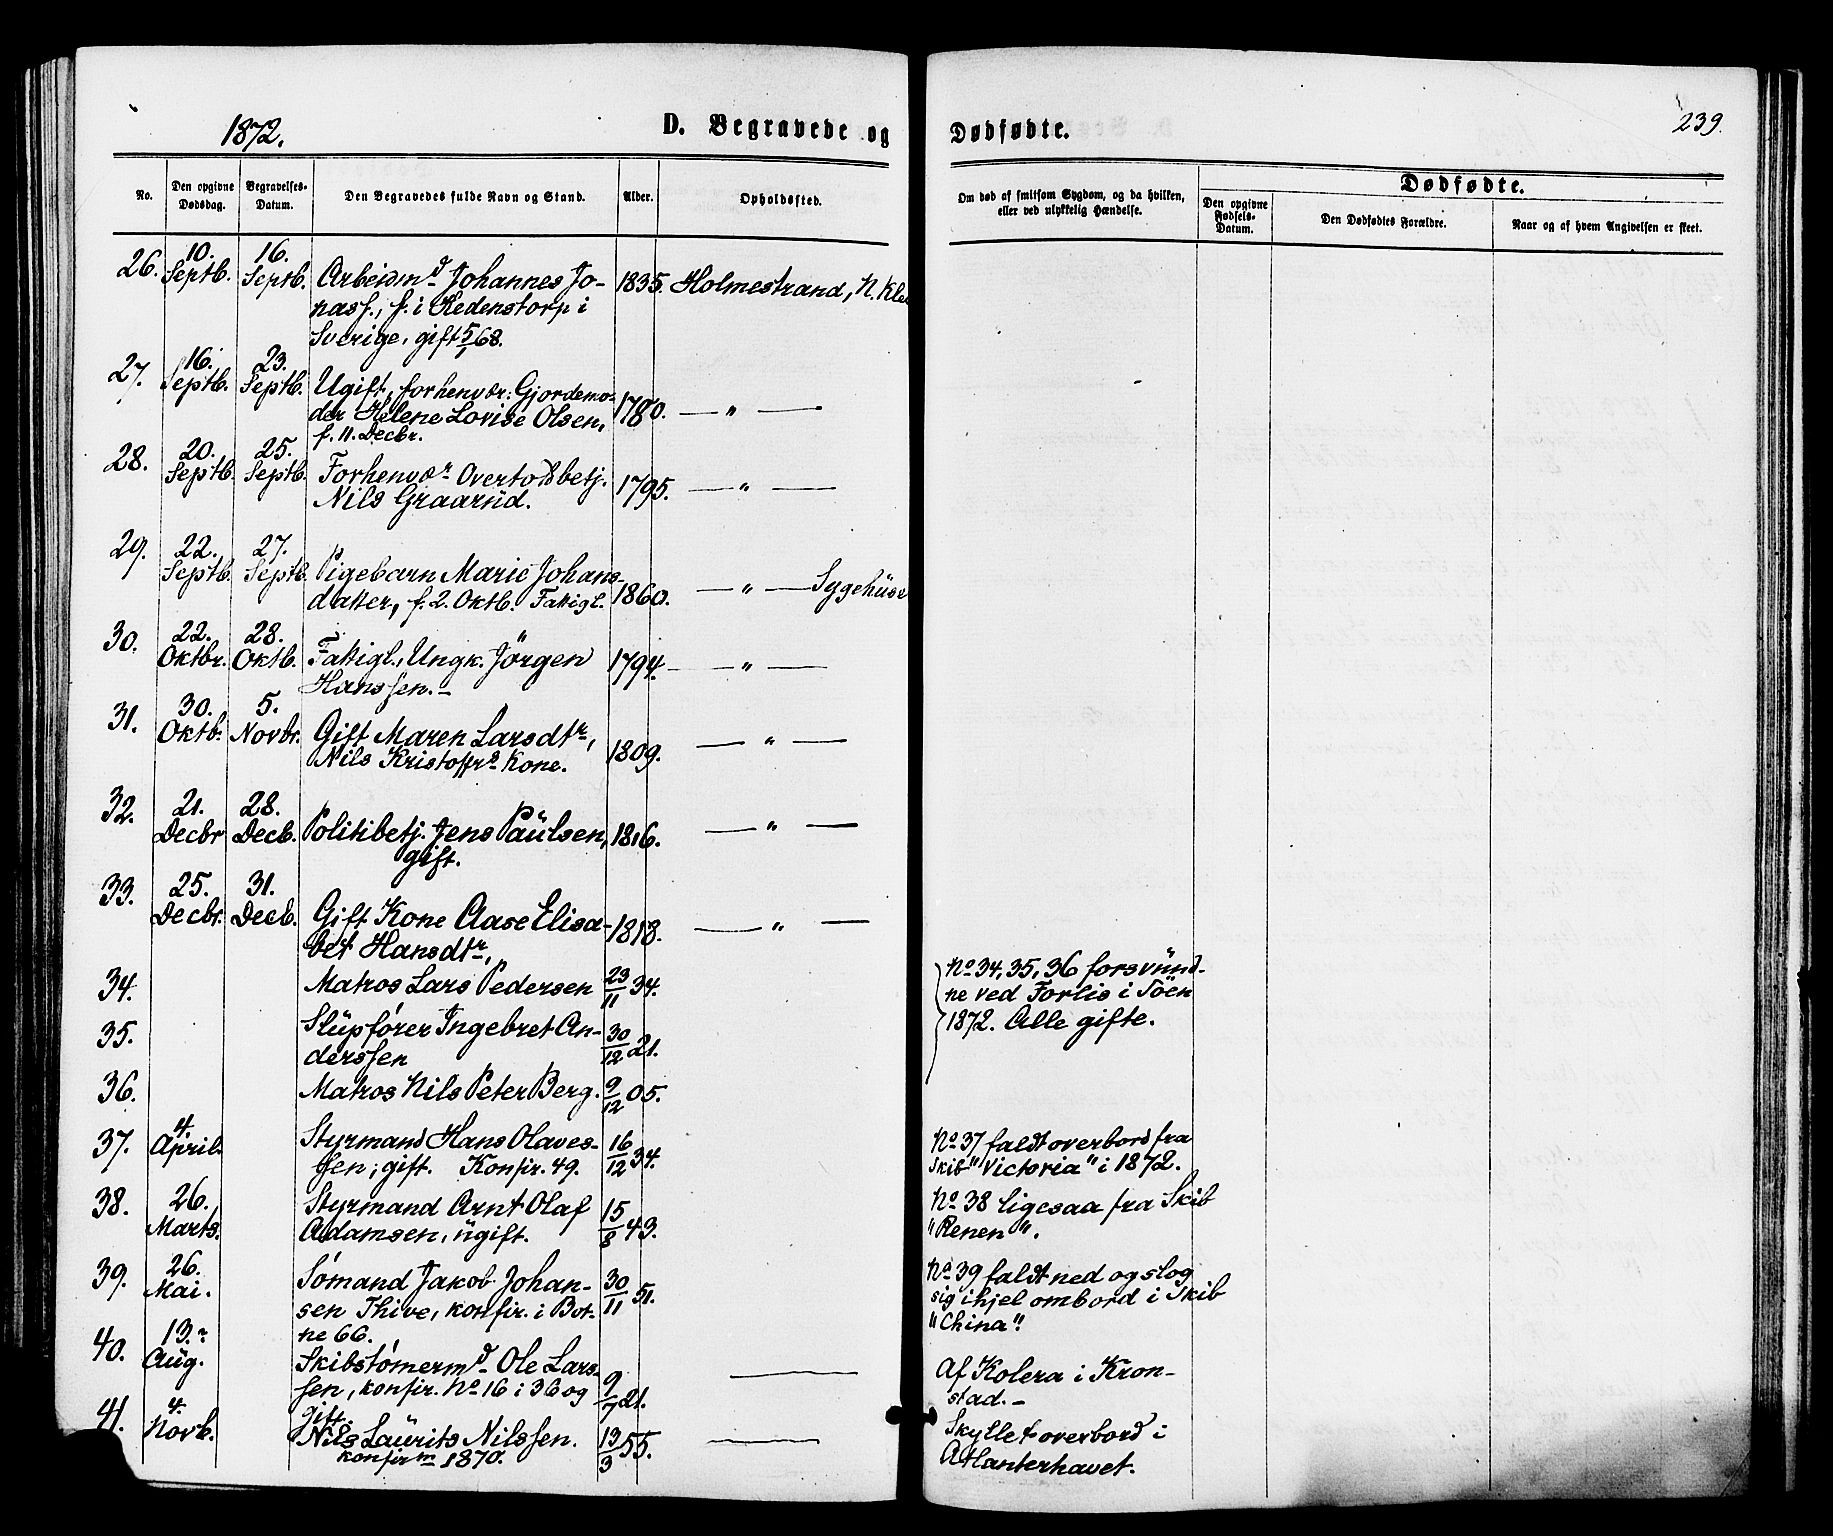 1872.
D. Begravede og
Dødfødte.
239.
No.
Den opgivne Dødsdag.
Begravelses-Datum.
Den Begravedes fulde Navn og Stand.
Alder.
Opholdssted.
Om død af smitsom Sygdom, og da hvilken,
eller ved ulykkelig Hændelse.
Dødfødte.
Den opgivne Fødsels-Datum.
Den Dødfødtes Forældre.
Naar og af hvem Angivelsen er skeet.
26. 10. Septb. 16. Septb. Arbeidmd Johannes Jo- 1835. Holmestrand, N. Kle
nass., f. i Redenstorp i
Sverige, gift 5/1 68.
27. 16. Septb. 23. Septb. Ugift, forhenvær: Gjordemo- 1780. — " —
der Helene Lovise Olsen,
f. 11. Decbr.
28. 20. Septb. 25. Septb. Forhenvær Overtoldbetj. 1795. — " —
Nils Graarüd.
29. 22. Septb. 27. Septb. Pigebarn Marie Johans- 1860. — " — Sygehüse
datter, f. 2. Oktb. Fattigl.
30. 22. Oktbr. 28. Oktb. Fattigl., Ungk. Jörgen 1794. — " —
Hanssen. —
31. 30. Oktb. 5. Novbr. Gift Maren Larsdtr, 1809. — " —
Nils Kristoffrs Kone.
32. 21. Decbr 28. Decb. Politibetj. Jens Paülsen, 1816. — " —
gift.
33. 25. Decbr. 31. Decb. Gift Kone Aase Elisa- 1818. — " —
bet Hansdtr,
34. Matros Lars Pedersen 23/11 34. No 34, 35, 36 forsvünd-
ne ved Forlis i Söen
1872. Alle gifte.
35. Slüpfører Ingebret An- 30/12 21.
derssen
36. Matros Nils Peter Berg. 9/12 05.
37. 4. April. Styrmand Hans Olaves- 16/12 34. No 37 faldt overbord fra
sen, gift. Konfir. 49. Skib "Victoria" i 1872.
38. 26. Marts. Styrmand Arnt Olaf 15/8 43. No 38 ligesaa fra Skib
Adamsen, ügift. "Renen".
39. 26. Mai. Sømand Jakob Johan- 30/11 51. No 39 faldt ned og slog
sen Thive, konfir. i Bot- sig ihjel ombord i Skib
ne 66. "China".
40. 13. Aüg. Skibstømermd Ole Lars- 9/7 21. — Af Kolera i Kron-
sen, konfir. No 16 i 36 og stad. —
gift.
41. 4. Novb. Nils Laürits Nilssen. 13/3 55. — Skyllet overbord i
konfirm 1870. Atlanterhavet.